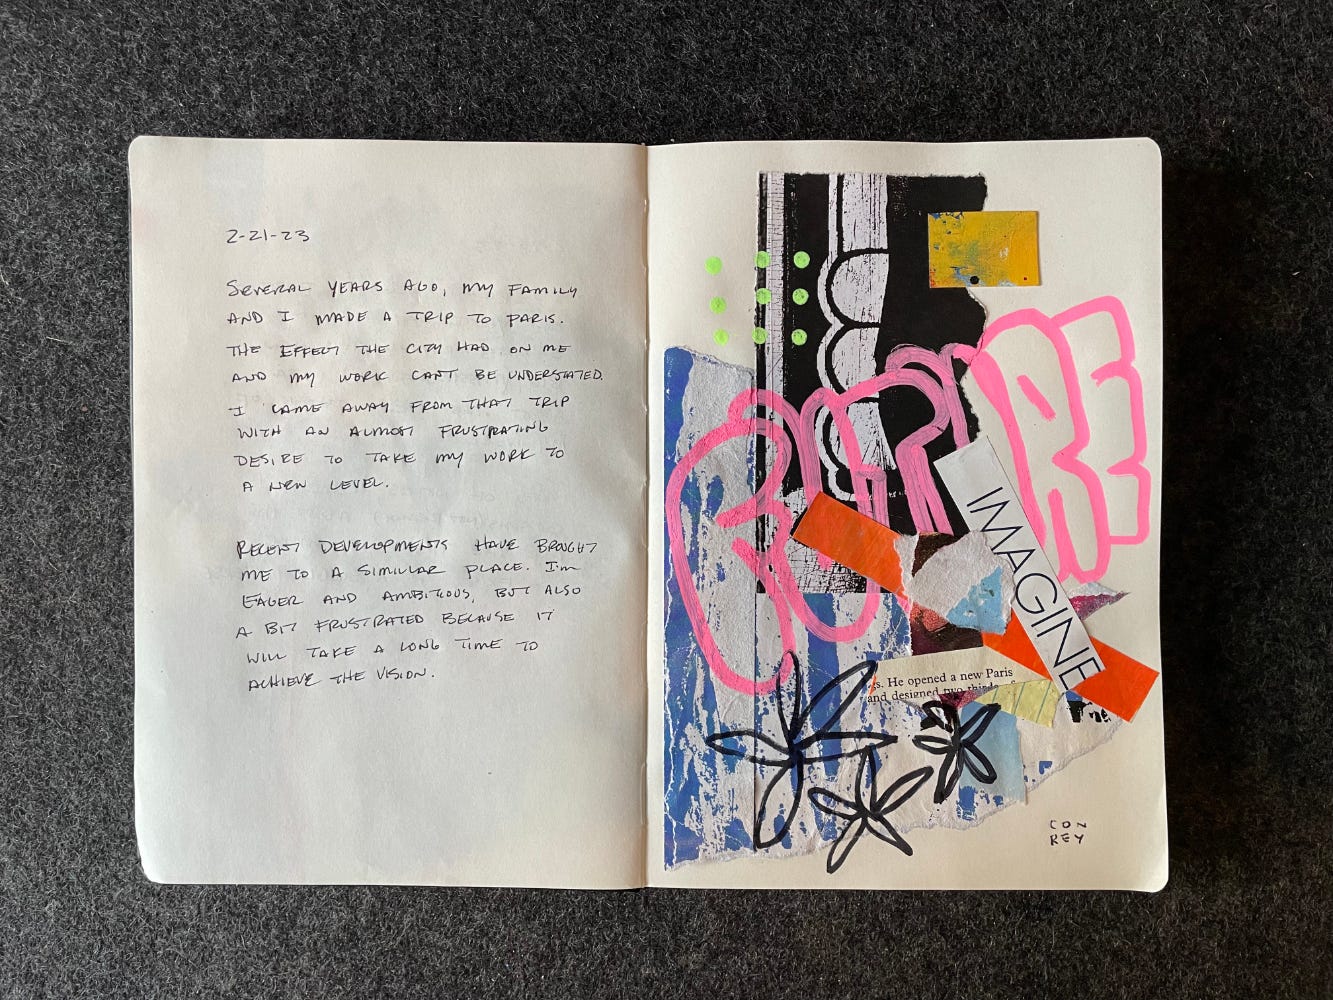 2-21-23
SEVERAL YEARS AGO, MY FAMILY
AND I MADE A TRIP TO PARIS.
THE EFFECT THE CITY HAD ON ME
AND MY WORK CAN'T BE UNDERSTATED.
I CAME AWAY FROM THAT TRIP
WITH AN ALMOST FRUSTRATING
DESIRE TO TAKE MY WORK TO
A NEW LEVEL.
RECENT DEVELOPMENTS HAVE BROUGHT
ME TO A SIMILLAR PLACE. I'M
EAGER AND AMBITIOUS, BUT ALSO
A BIT FRUSTRATED BECAUSE IT
WILL TAKE A LONG TIME TO
ACHIEVE THE VISION.
IMAGINE
. He opened a new Paris
and designed two thirds
CON
REY